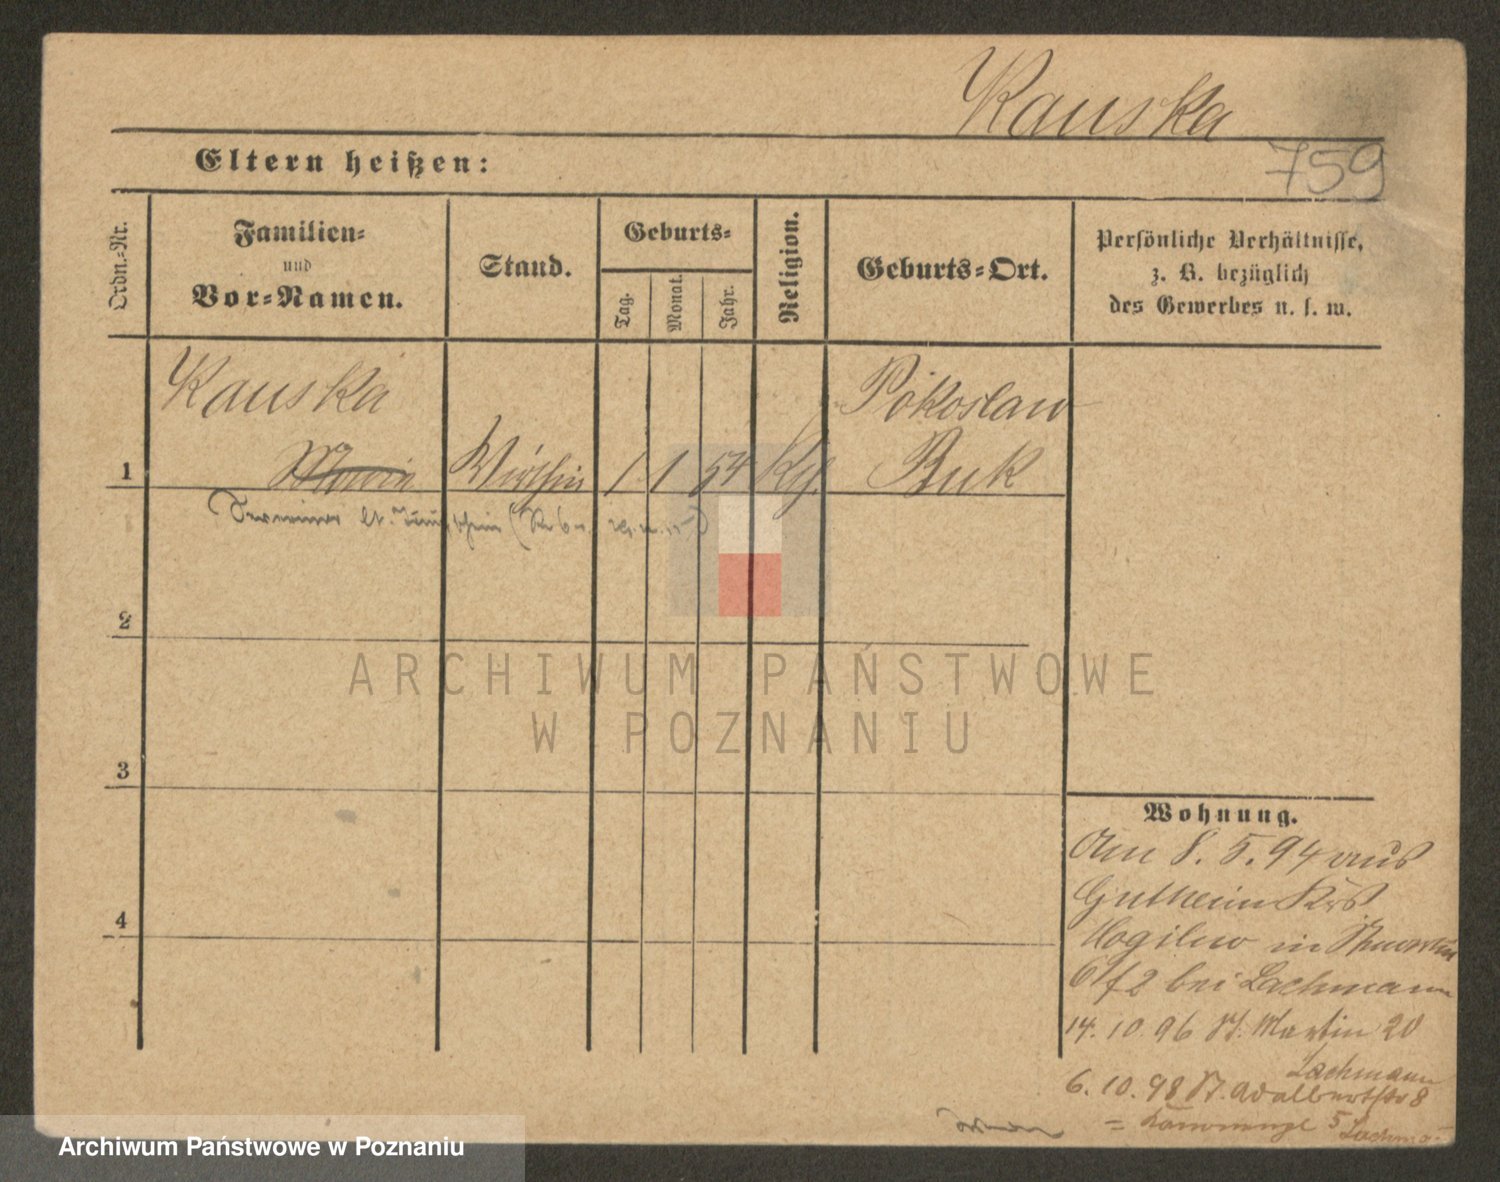 Kauska
759
Eltern heißen:
Ordn.-Nr.
Familien-
und
Vor-Namen.
Stand.
Geburts-
Tag.
Monat.
Jahr.
Religion.
Geburts-Ort.
Persönliche Verhältnisse,
z. B. bezüglich
des Gewerbes u. s. w.
Kauska
Pokoslaw
1 Wirthin 1 1 54 Buk
2
3
4
Wohnung.
Am 8. 5. 94 aus
Gutheim
Mogilno in
bei Lachmann
14. 10. 96 St. Martin 20
Lachmann
6. 10. 98 St. Adalbertstr 8
5
ARCHIWUM PAŃSTWOWE
W POZNANIU
Archiwum Państwowe w Poznaniu